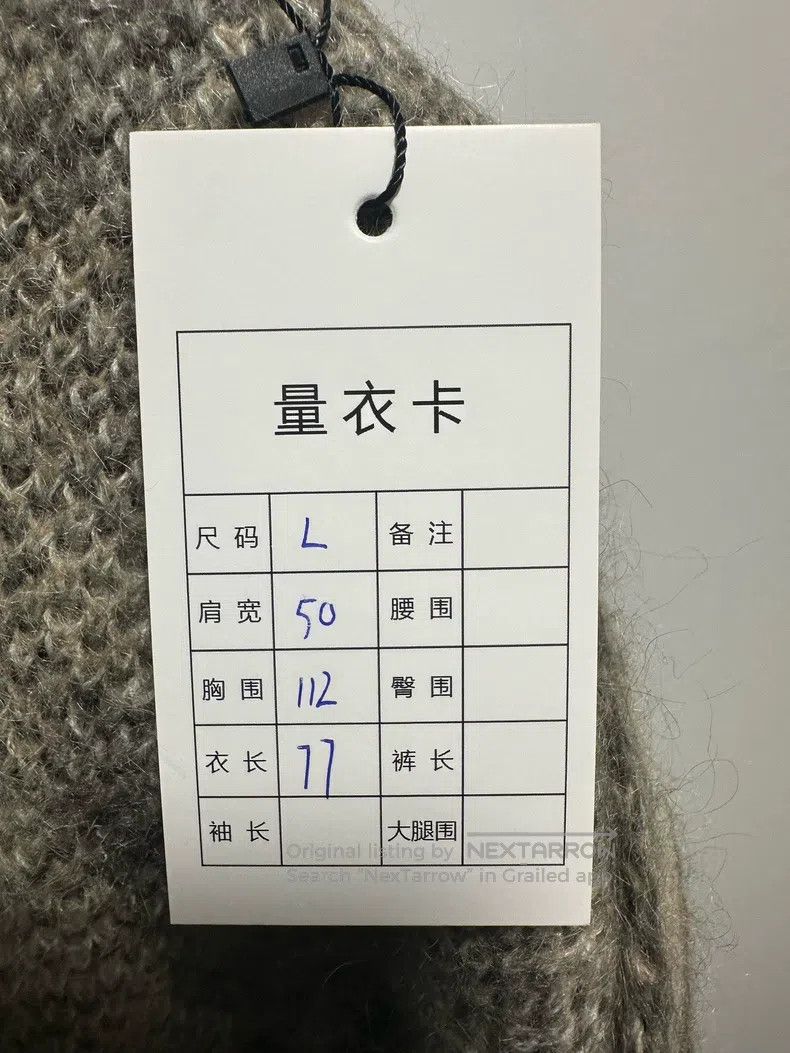 量衣卡
尺码 L 备注
肩宽 50 腰围
胸围 112 臀围
衣长 77 裤长
袖长 大腿围
Original listing by NEXTARROW
Search "NexTarrow" in Grailed app